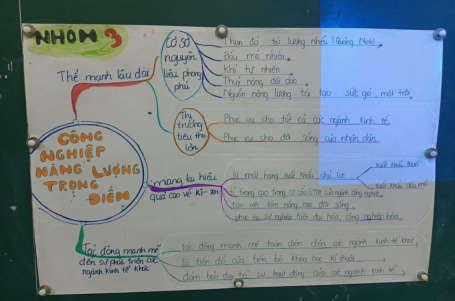 NHÓM 3
Thế mạnh lâu dài
Cơ sở
nguyên
liệu phong
phú
Than đá trữ lượng nhiều (Quảng Ninh)
Dầu mỏ nhiều
Khí tự nhiên
Thuỷ năng dồi dào
Nguồn năng lượng tái tạo sức gió, mặt trời
Thị
trường
tiêu thụ
lớn
Phục vụ cho tất cả các ngành kinh tế
Phục vụ cho đời sống của nhân dân
CÔNG
NGHIỆP
NĂNG LƯỢNG
TRỌNG
ĐIỂM
mang lại hiệu
quả cao về KT-XH
là mặt hàng xuất khẩu chủ lực
xuất khẩu than
xuất khẩu dầu mỏ
tỉ trọng cao trong cơ cấu GTSX của ngành công nghiệp
phục vụ sự nghiệp hiện đại hóa, công nghiệp hóa
Tác động mạnh mẽ
đến sự phát triển các
ngành kinh tế khác
tác động mạnh mẽ toàn diện đến các ngành kinh tế khác
là tiền đề của tiến bộ khoa học kĩ thuật
đảm bảo duy trì sự hoạt động của các ngành kinh tế